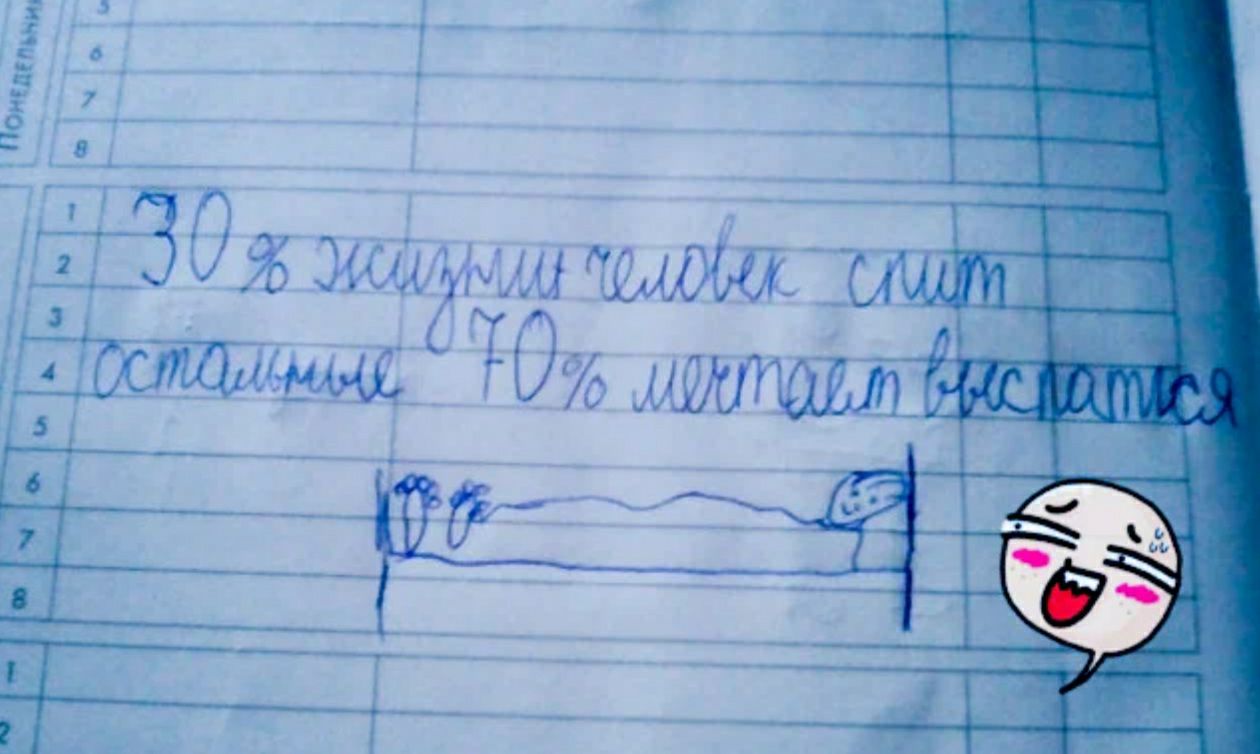 Понедельник
5
6
7
8
1
2
3
4
5
6
7
8
1
2
30% жизни человек спит
остальные 70% мечтает выспаться